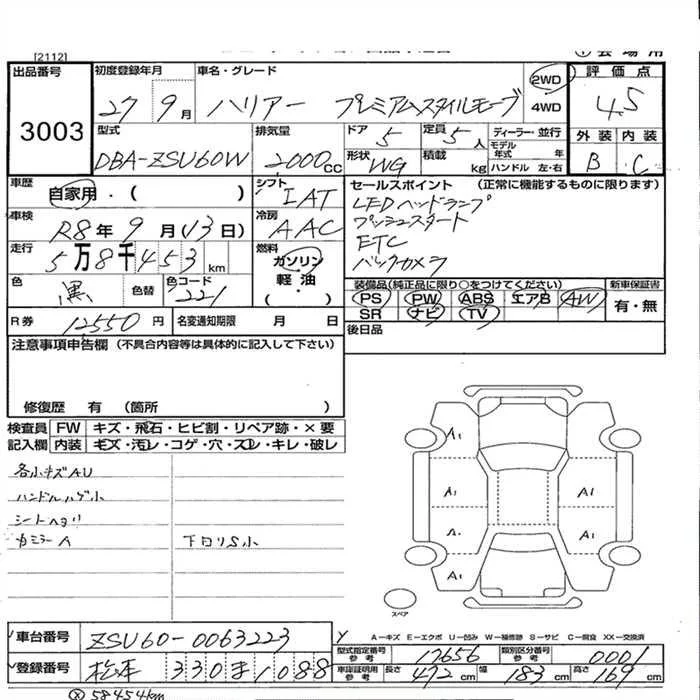 [2112]
会場用
出品番号
3003
初度登録年月
27 9月
車名・グレード
ハリアー プレミアムスタイルモーブ
2WD
4WD
評価点
4.5
外装 内装
B C
型式
DBA-ZSU60W
排気量
2000cc
ドア 5
定員 5人
形状 WG
積載 kg
ディーラー・並行
モデル年式 年
ハンドル 左・右
車歴
自家用・( )
シフト IAT
車検
R8年9月(13日)
冷房 AAC
走行
5万8千453km
燃料
ガソリン
軽・油
・( )
色 黒
色替
色コード 221
セールスポイント (正常に機能するものに限ります)
LEDヘッドランプ
プッシュスタート
ETC
バックカメラ
装備品(純正品に限り○をつけてください)
PS PW ABS エアB AW
SR ナビ TV
新車保証書
有・無
R券 12550円
名変通知期限 月 日
後日品
注意事項申告欄 (不具合内容等は具体的に記入して下さい)
修復歴 有 (箇所 )
検査員 FW キズ・飛石・ヒビ割・リペア跡・×要
記入欄 内装 キズ・汚レ・コゲ・穴・スレ・キレ・破レ
各小キズAU
ハンドルハゲ小
シートヘタリ
カミラーA
下回リS小
A1
A1
A1
A1
A1
A1
スペア
A―キズ E―エクボ U―凹み W―補修跡 S―サビ C―腐食 XX―交換済
車台番号 ZSU60-0063223
登録番号 松本 330 ま 1088
型式指定番号 参考 17656
類別区分番号 参考 0001
車庫証明用 参考 長さ 472cm 幅 183cm 高さ 169cm
58454km